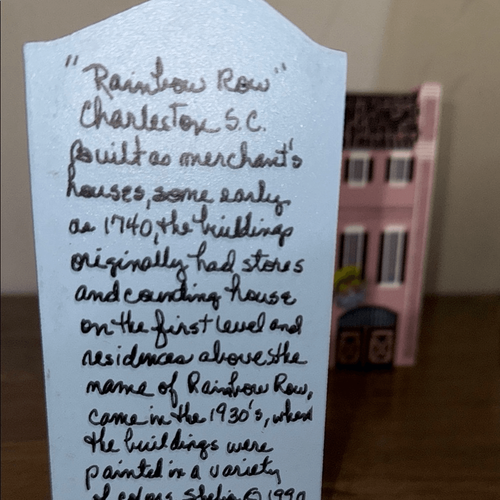 "Rainbow Row"
Charleston S.C.
Built as merchant's
houses, some early
as 1740, the buildings
originally had stores
and counting house
on the first level and
residences above. the
name of Rainbow Row,
came in the 1930's, when
the buildings were
painted in a variety
of colors Shelia © 1990